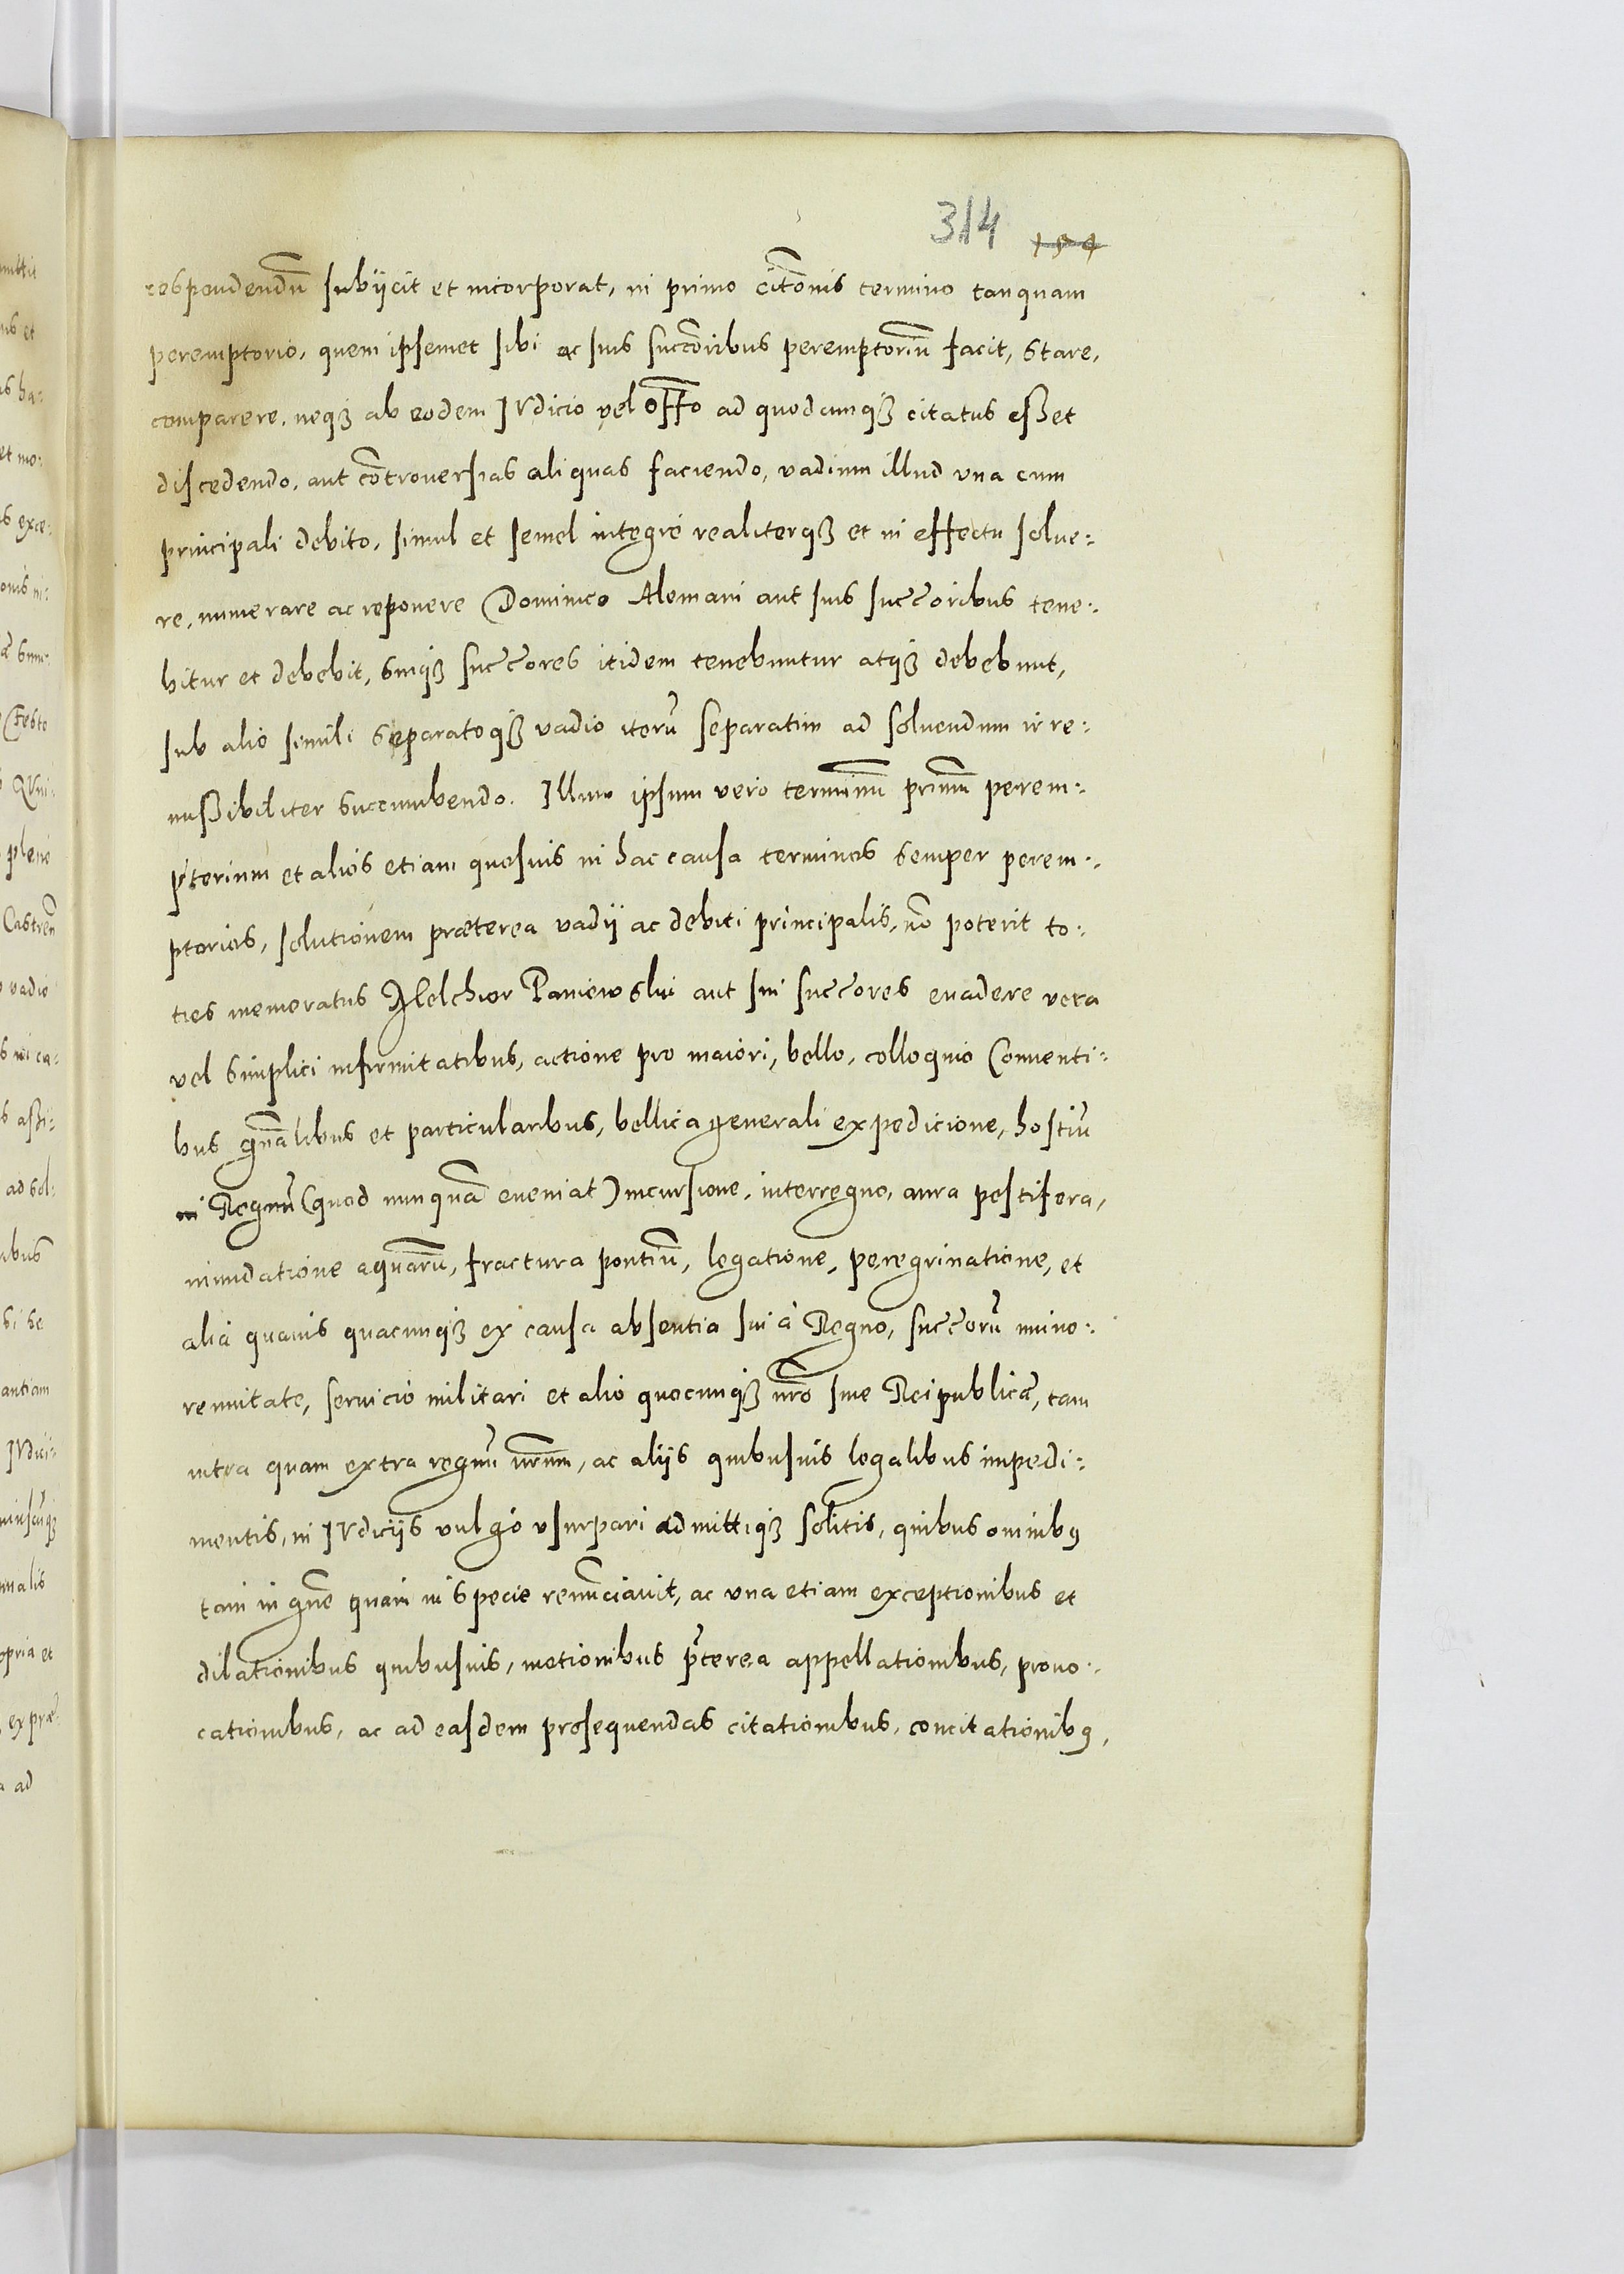 314 154
respondendū subijcit et incorporat, in primo citōnis termino tanquam
peremptorio, quem ipsemet sibi ac suis succōribus peremptoriū facit, stare,
comparere, neqȝ ab eodem Iudicio vel offo ad quodcumqȝ citatus esset
discedendo, aut cōtrouersias aliquas faciendo, vadium illud vna cum
principali debito, simul et semel integrè realiterqȝ et in effectu solue:
re, numerare ac reponere Dominico Alemani aut suis succoribus tene:
bitur et debebit, suiqȝ succores itidem tenebuntur atqȝ debebunt,
sub alio simili separatoqȝ vadio iterū separatim ad soluendum irre:
missibiliter succumbendo. Illum ipsum vero terminū primū perem:
ptorium et alios etiam quosuis in hac causa terminos semper perem:
ptorios, solutionem præterea vadij ac debiti principalis, nō poterit to:
ties memoratus Melchior Paniewski aut sui succores euadere vera
vel simplici infirmitatibus, actione pro maiori, bello, colloquio Conuenti:
bus gn̄alibus et particularibus, bellica generali expedicione, hostiū
in Regnū (quod nunquā eueniat) incursione, interregno, aura pestifera,
inundatione aquarū, fractura pontiū, legatione, peregrinatione, et
alia quauis quacunqȝ ex causa absentia sui à Regno, succorū mino:
rennitate, seruicio militari et alio quocunqȝ nr̄o siue Reipublicæ, tam
intra quam extra regnū nr̄um, ac aliis quibusuis legalibus impedi:
mentis, in Iudiciis vulgo vsurpari admittiqȝ solitis, quibus omnibꝰ
tam in gn̄e quam in specie renūciauit, ac vna etiam exceptionibus et
dilationibus quibusuis, motionibus p̄terea appellationibus, prouo:
cationibus, ac ad easdem prosequendas citationibus, concitationibꝰ,